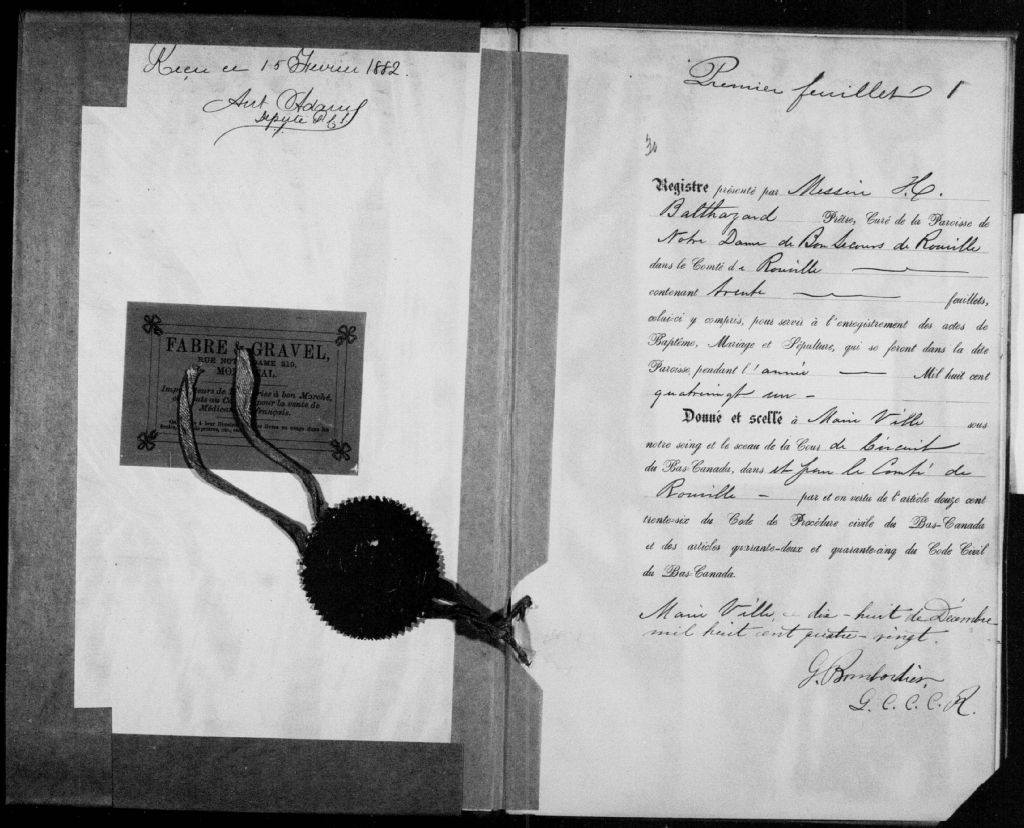 Reçu ce 15 Fevrier 1882.
Ant Adam
Deputé P. C. S.
FABRE & GRAVEL,
RUE NOTRE DAME 210,
MONTREAL.
à bon Marché,
pour la vente de
Français.
Premier feuillet 1
30
Registre présenté par Messire H.
Balthazard Prêtre, Curé de la Paroisse de
Notre Dame de Bon Secours de Rouville
dans le Comté de Rouville
contenant trente feuillets,
celui-ci y compris, pour servir à l'enregistrement des actes de
Baptême, Mariage et Sépulture, qui se feront dans la dite
Paroisse pendant l'année Mil huit cent
quatrevingt un -
Donné et scellé à Marie Ville sous
notre seing et le sceau de la Cour de Circuit
du Bas-Canada, dans et pour le Comté de
Rouville - par et en vertu de l'article douze cent
trente-six du Code de Procédure civile du Bas-Canada
et des articles quarante-deux et quarante-cinq du Code Civil
du Bas-Canada.
Marie Ville, ce dix-huit de Décembre
mil huit cent quatre-vingt.
G. Bombardier,
G. C. C. C. R.